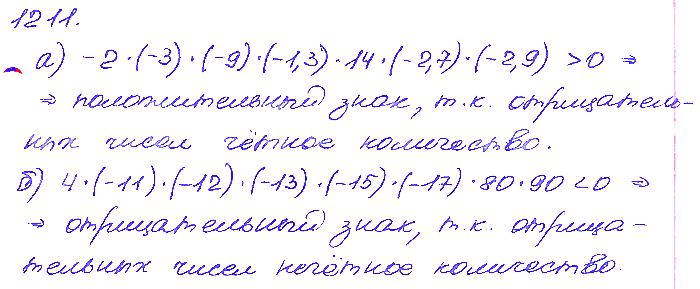 1211.
а) -2·(-3)·(-9)·(-1,3)·14·(-2,7)·(-2,9) >0 ⇒
⇒ положительный знак, т.к. отрицатель-
ных чисел чётное количество.
б) 4·(-11)·(-12)·(-13)·(-15)·(-17)·80·90 <0 ⇒
⇒ отрицательный знак, т.к. отрица-
тельных чисел нечётное количество.